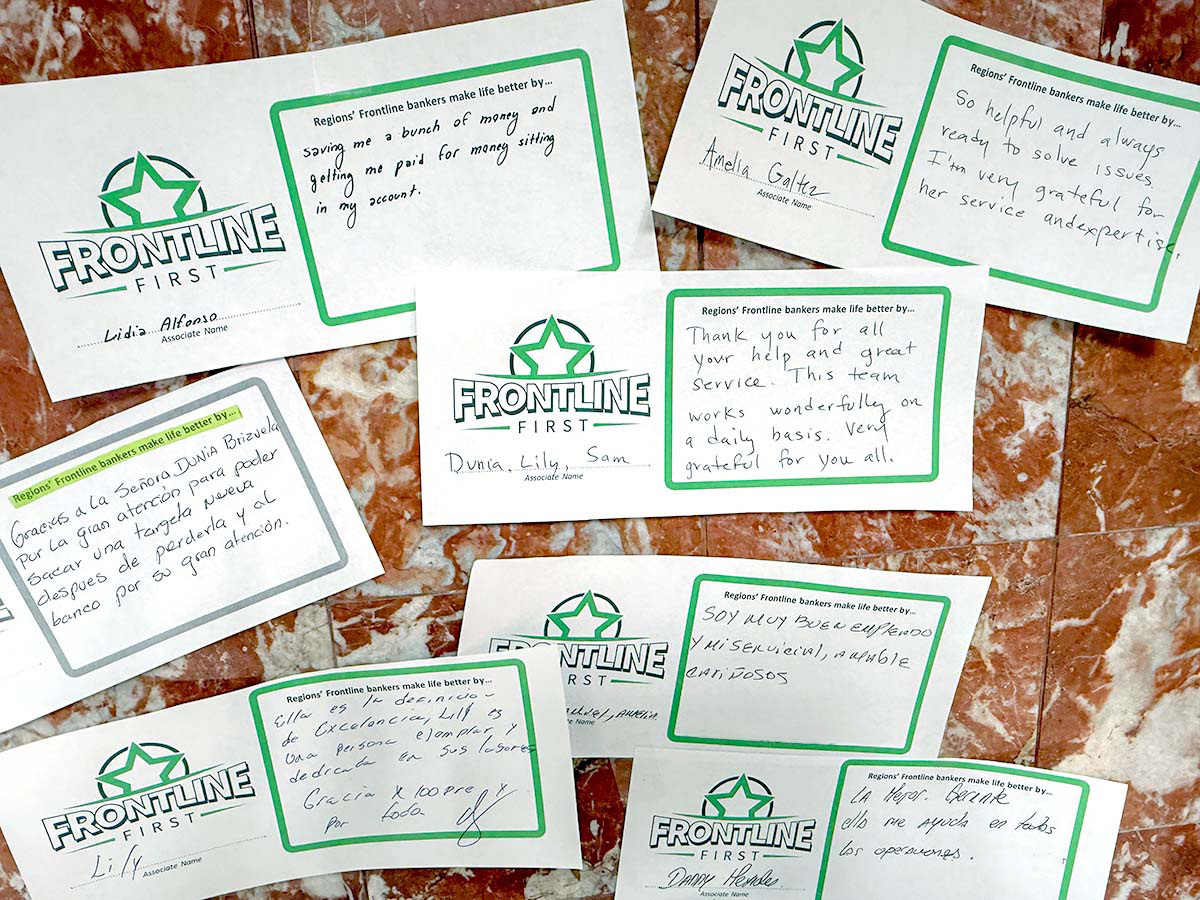 FRONTLINE
FIRST
Lidia Alfonso
Associate Name
Regions' Frontline bankers make life better by...
saving me a bunch of money and
getting me paid for money sitting
in my account.
FRONTLINE
FIRST
Amelia Galtez
Associate Name
Regions' Frontline bankers make life better by...
So helpful and always
ready to solve issues.
I'm very grateful for
her service andexpertise.
FRONTLINE
FIRST
Dunia, Lily, Sam
Associate Name
Regions' Frontline bankers make life better by...
Thank you for all
your help and great
service. This team
works wonderfully on
a daily basis. Very
grateful for you all.
Regions' Frontline bankers make life better by...
Gracias a la Señora DUNIA Brizuela
por la gran atención para poder
sacar una targeta nueva
despues de perderla y al
banco por su gran atención.
FRONTLINE
FIRST
Amelia
Associate Name
Regions' Frontline bankers make life better by...
SOY MUY BUEN EMPLEADO
Y MI SERVICIAL, AMABLE
CARIÑOSOS
FRONTLINE
FIRST
Lily
Associate Name
Regions' Frontline bankers make life better by...
Ella es la definicio-
de Excelencia, Lily es
una persona ejemplar y
dedicada en sus labores
Gracia x 100pre y
por toda
FRONTLINE
FIRST
DANNY
Associate Name
Regions' Frontline bankers make life better by...
LA Mejor. Gerente
ella me ayuda en todos
los operaciones.